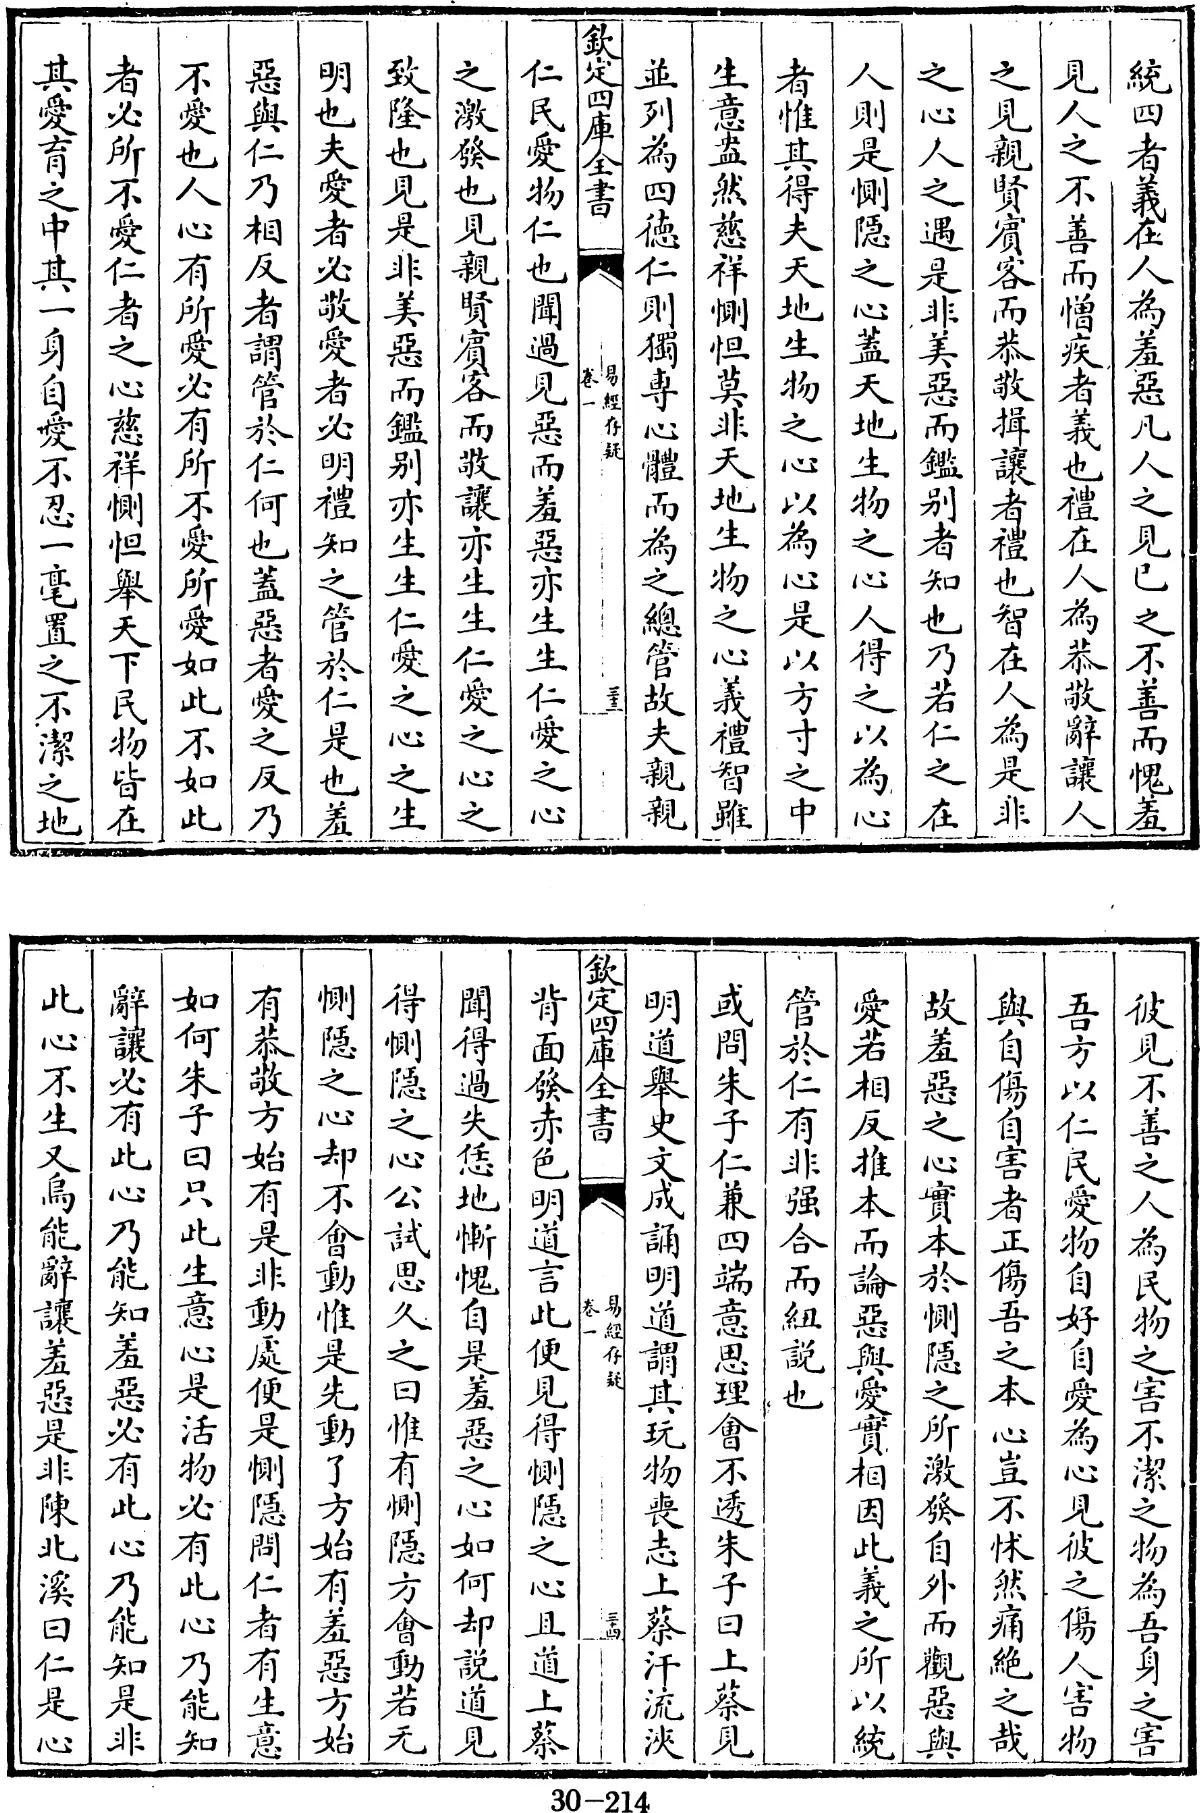 統四者義在人為羞惡凡人之見已之不善而愧羞
見人之不善而憎疾者義也禮在人為恭敬辭讓人
之見親賢賓客而恭敬揖讓者禮也智在人為是非
之心人之遇是非美惡而鑑别者知也乃若仁之在
人則是惻隠之心蓋天地生物之心人得之以為心
者惟其得夫天地生物之心以為心是以方寸之中
生意盎然慈祥惻怛莫非天地生物之心義禮智雖
並列為四徳仁則獨專心體而為之總管故夫親親
欽定四庫全書
易經存疑
卷一
三十三
仁民愛物仁也聞過見惡而羞惡亦生生仁愛之心
之激發也見親賢賓客而敬讓亦生生仁愛之心之
致隆也見是非美惡而鑑别亦生生仁愛之心之生
明也夫愛者必敬愛者必明禮知之管於仁是也羞
惡與仁乃相反者謂管於仁何也蓋惡者愛之反乃
不愛也人心有所愛必有所不愛所愛如此不如此
者必所不愛仁者之心慈祥惻怛舉天下民物皆在
其愛育之中其一身自愛不忍一毫置之不潔之地
彼見不善之人為民物之害不潔之物為吾身之害
吾方以仁民愛物自好自愛為心見彼之傷人害物
與自傷自害者正傷吾之本心豈不怵然痛絶之哉
故羞惡之心實本於惻隠之所激發自外而觀惡與
愛若相反推本而論惡與愛實相因此義之所以統
管於仁有非强合而紐説也
或問朱子仁兼四端意思理會不透朱子曰上蔡見
明道舉史文成誦明道謂其玩物喪志上蔡汗流浹
欽定四庫全書
易經存疑
卷一
三十四
背面發赤色明道言此便見得惻隠之心且道上蔡
聞得過失恁地慚愧自是羞惡之心如何却説道見
得惻隠之心公試思久之曰惟有惻隠方會動若无
惻隠之心却不會動惟是先動了方始有羞惡方始
有恭敬方始有是非動處便是惻隠問仁者有生意
如何朱子曰只此生意心是活物必有此心乃能知
辭讓必有此心乃能知羞惡必有此心乃能知是非
此心不生又烏能辭讓羞惡是非陳北溪曰仁是心
30-214